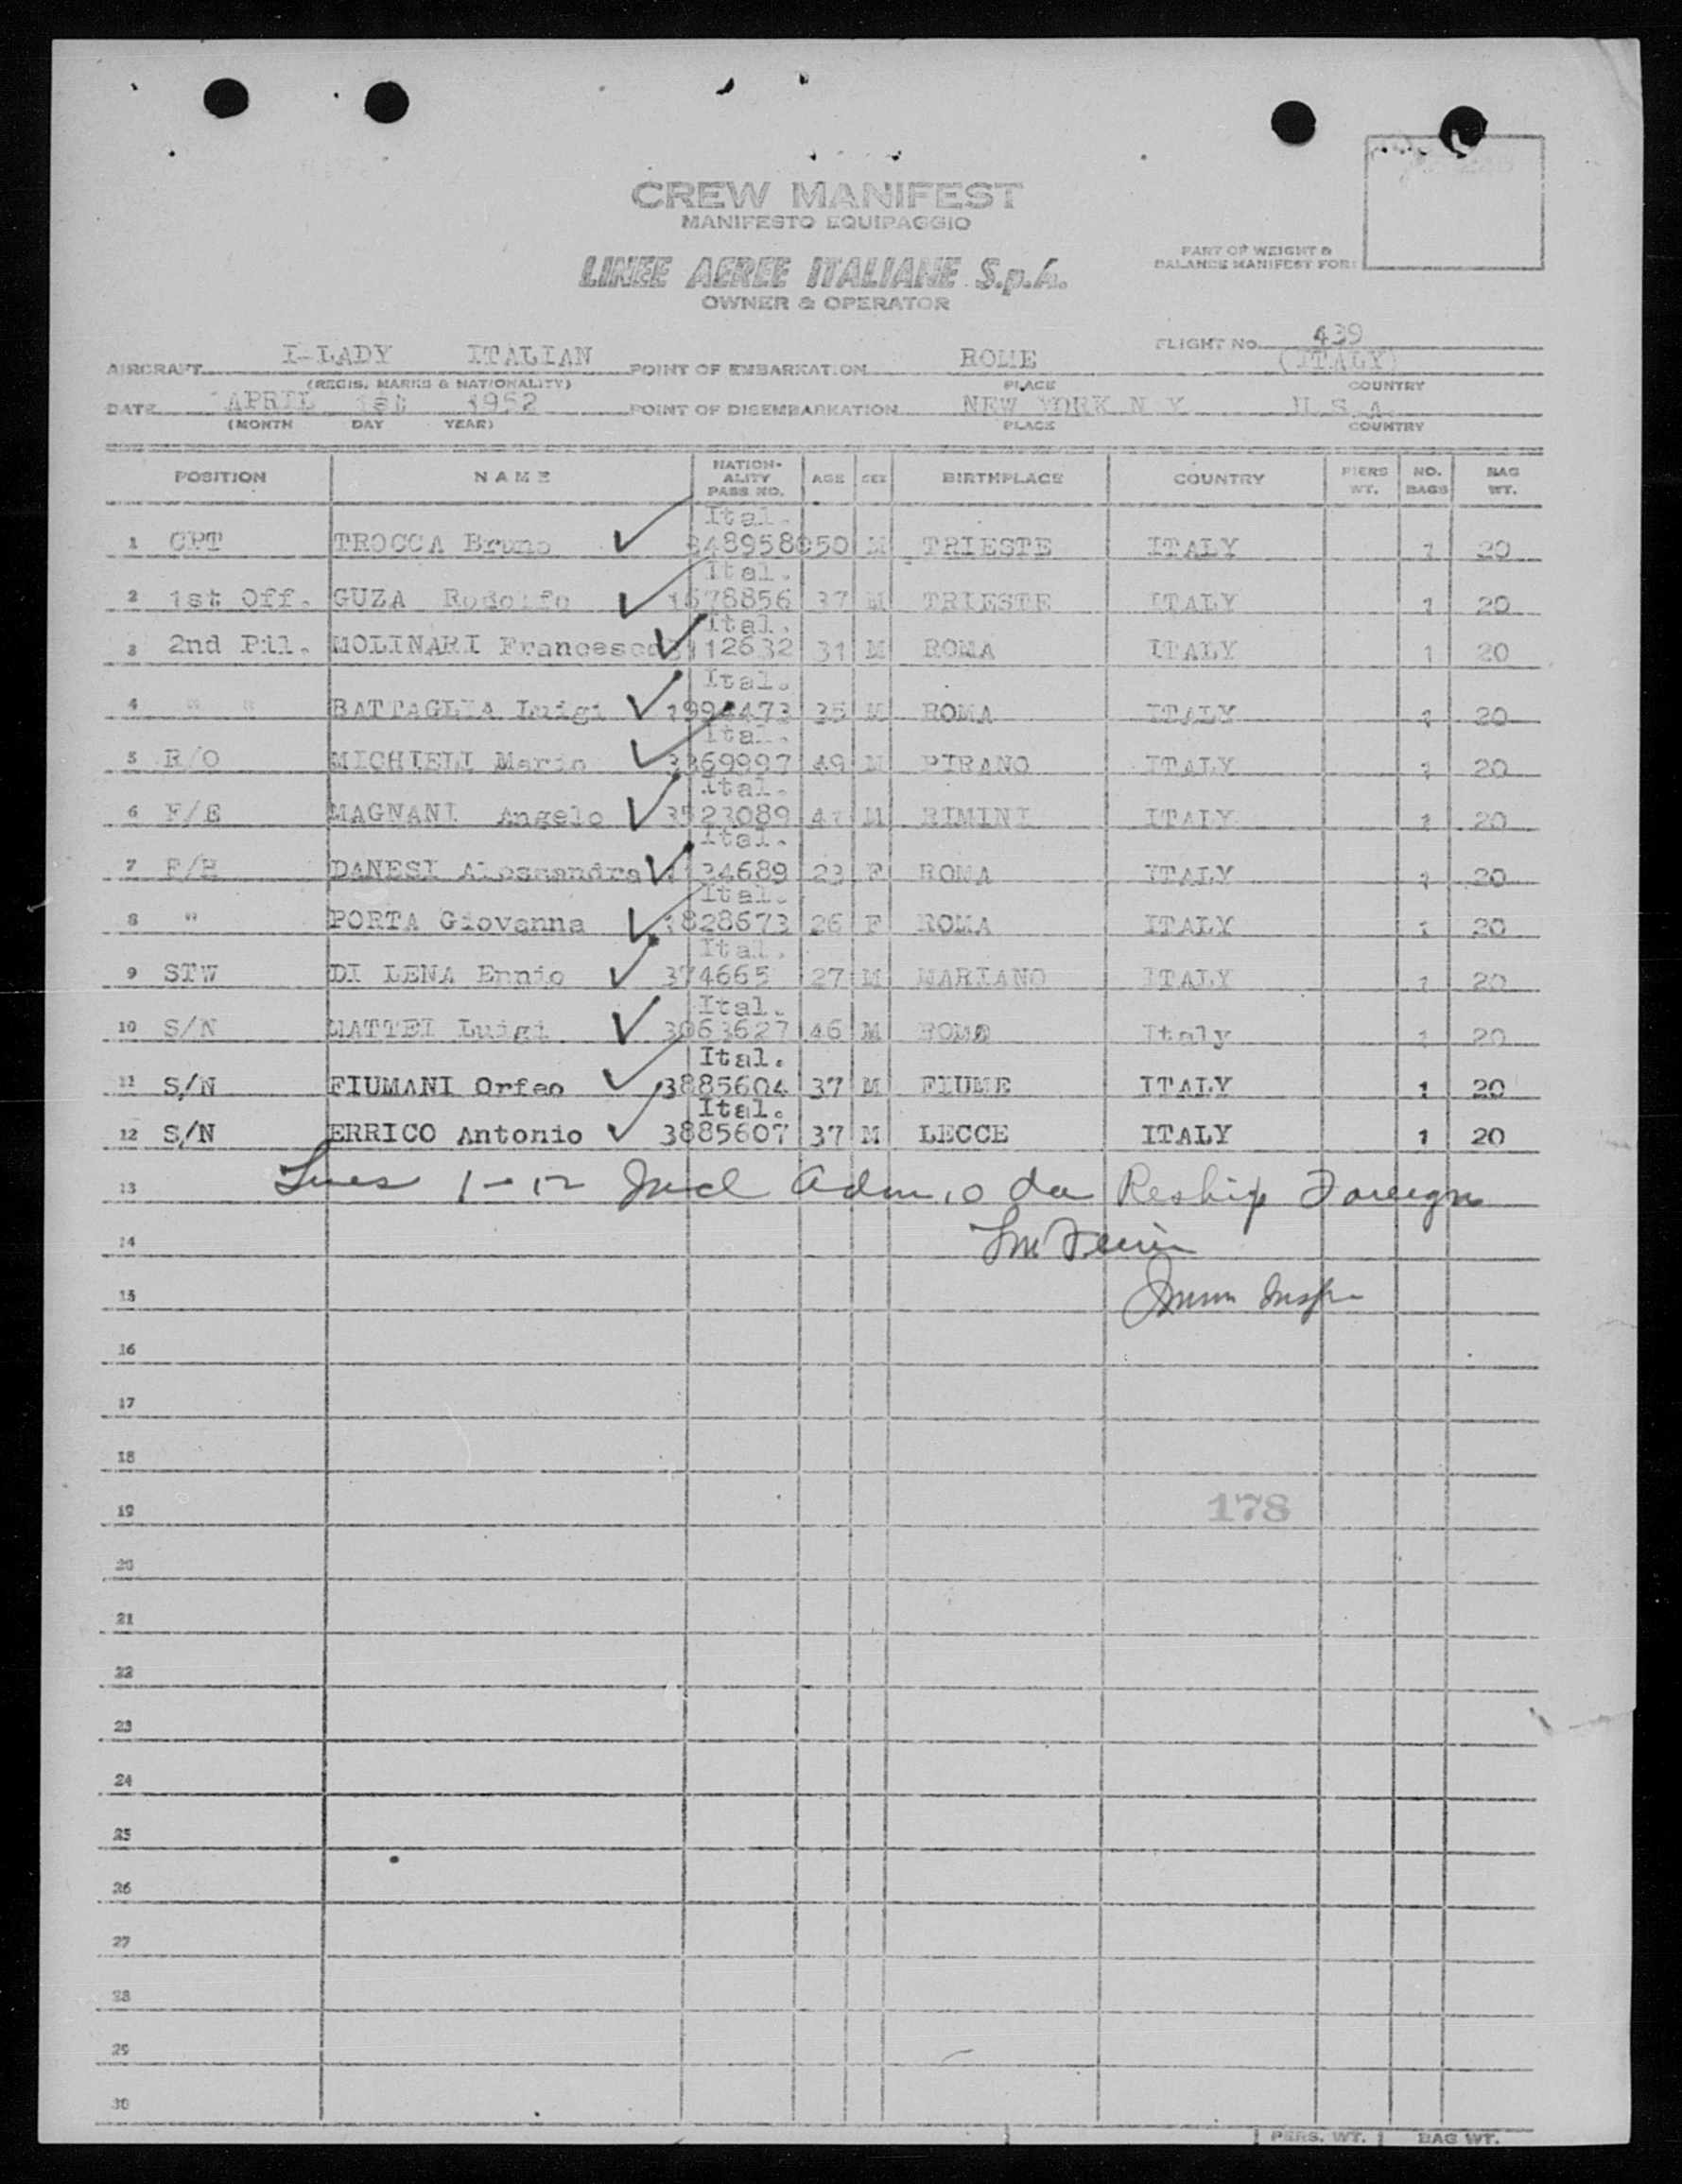 CREW MANIFEST
MANIFESTO EQUIPAGGIO
LINEE AEREE ITALIANE S.p.A.
OWNER & OPERATOR
PART OF WEIGHT &
BALANCE MANIFEST FOR:
FLIGHT No. 439
AIRCRAFT I-LADY ITALIAN POINT OF EMBARKATION ROME (ITALY)
(REGIS. MARKS & NATIONALITY) PLACE COUNTRY
DATE APRIL 1st 1952 POINT OF DISEMBARKATION NEW YORK N Y U.S.A.
(MONTH DAY YEAR) PLACE COUNTRY
POSITION NAME NATION-ALITY PASS NO. AGE SEX BIRTHPLACE COUNTRY PERS WT. NO. BAGS BAG WT.
Ital.
1 CPT TROCCA Bruno 50 M TRIESTE ITALY 1 20
Ital.
2 1st Off. GUZA Rodolfo 1678856 37 M TRIESTE ITALY 1 20
Ital.
3 2nd Pil. MOLINARI Francesco 31 M ROMA ITALY 1 20
Ital.
4 " " BATTAGLIA Luigi 1994473 35 M ROMA ITALY 1 20
Ital.
5 R/O MICHIELI Mario 3369997 49 M PIRANO ITALY 1 20
Ital.
6 F/E MAGNANI Angelo 3523089 41 M RIMINI ITALY 1 20
Ital.
7 F/H DANESI Alessandra 23 F ROMA ITALY 1 20
Ital.
8 " PORTA Giovanna 1828673 26 F ROMA ITALY 1 20
Ital.
9 STW DI LENA Ennio 374665 27 M MARIANO ITALY 1 20
Ital.
10 S/N MATTEI Luigi 3063627 46 M ROMA Italy 1 20
Ital.
11 S/N FIUMANI Orfeo 3885604 37 M FIUME ITALY 1 20
Ital.
12 S/N ERRICO Antonio 3885607 37 M LECCE ITALY 1 20
13 Lines 1-12 Incl Adm. Reship Foreign
14
15 Imm Insp
16
17
18
19 178
20
21
22
23
24
25
26
27
28
29
30
PERS. WT. BAG WT.